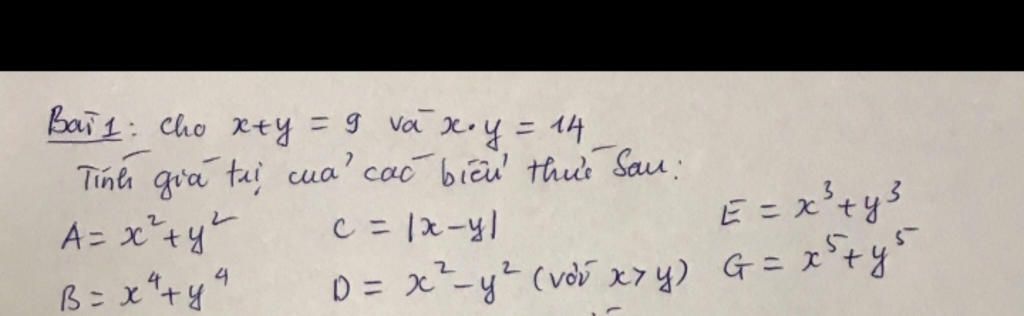 Bài 1: Cho x+y = 9 và x.y = 14
Tính giá trị của các biểu thức sau:
A = x²+y² C = |x-y| E = x³+y³
B = x⁴+y⁴ D = x²-y² (với x>y) G = x⁵+y⁵